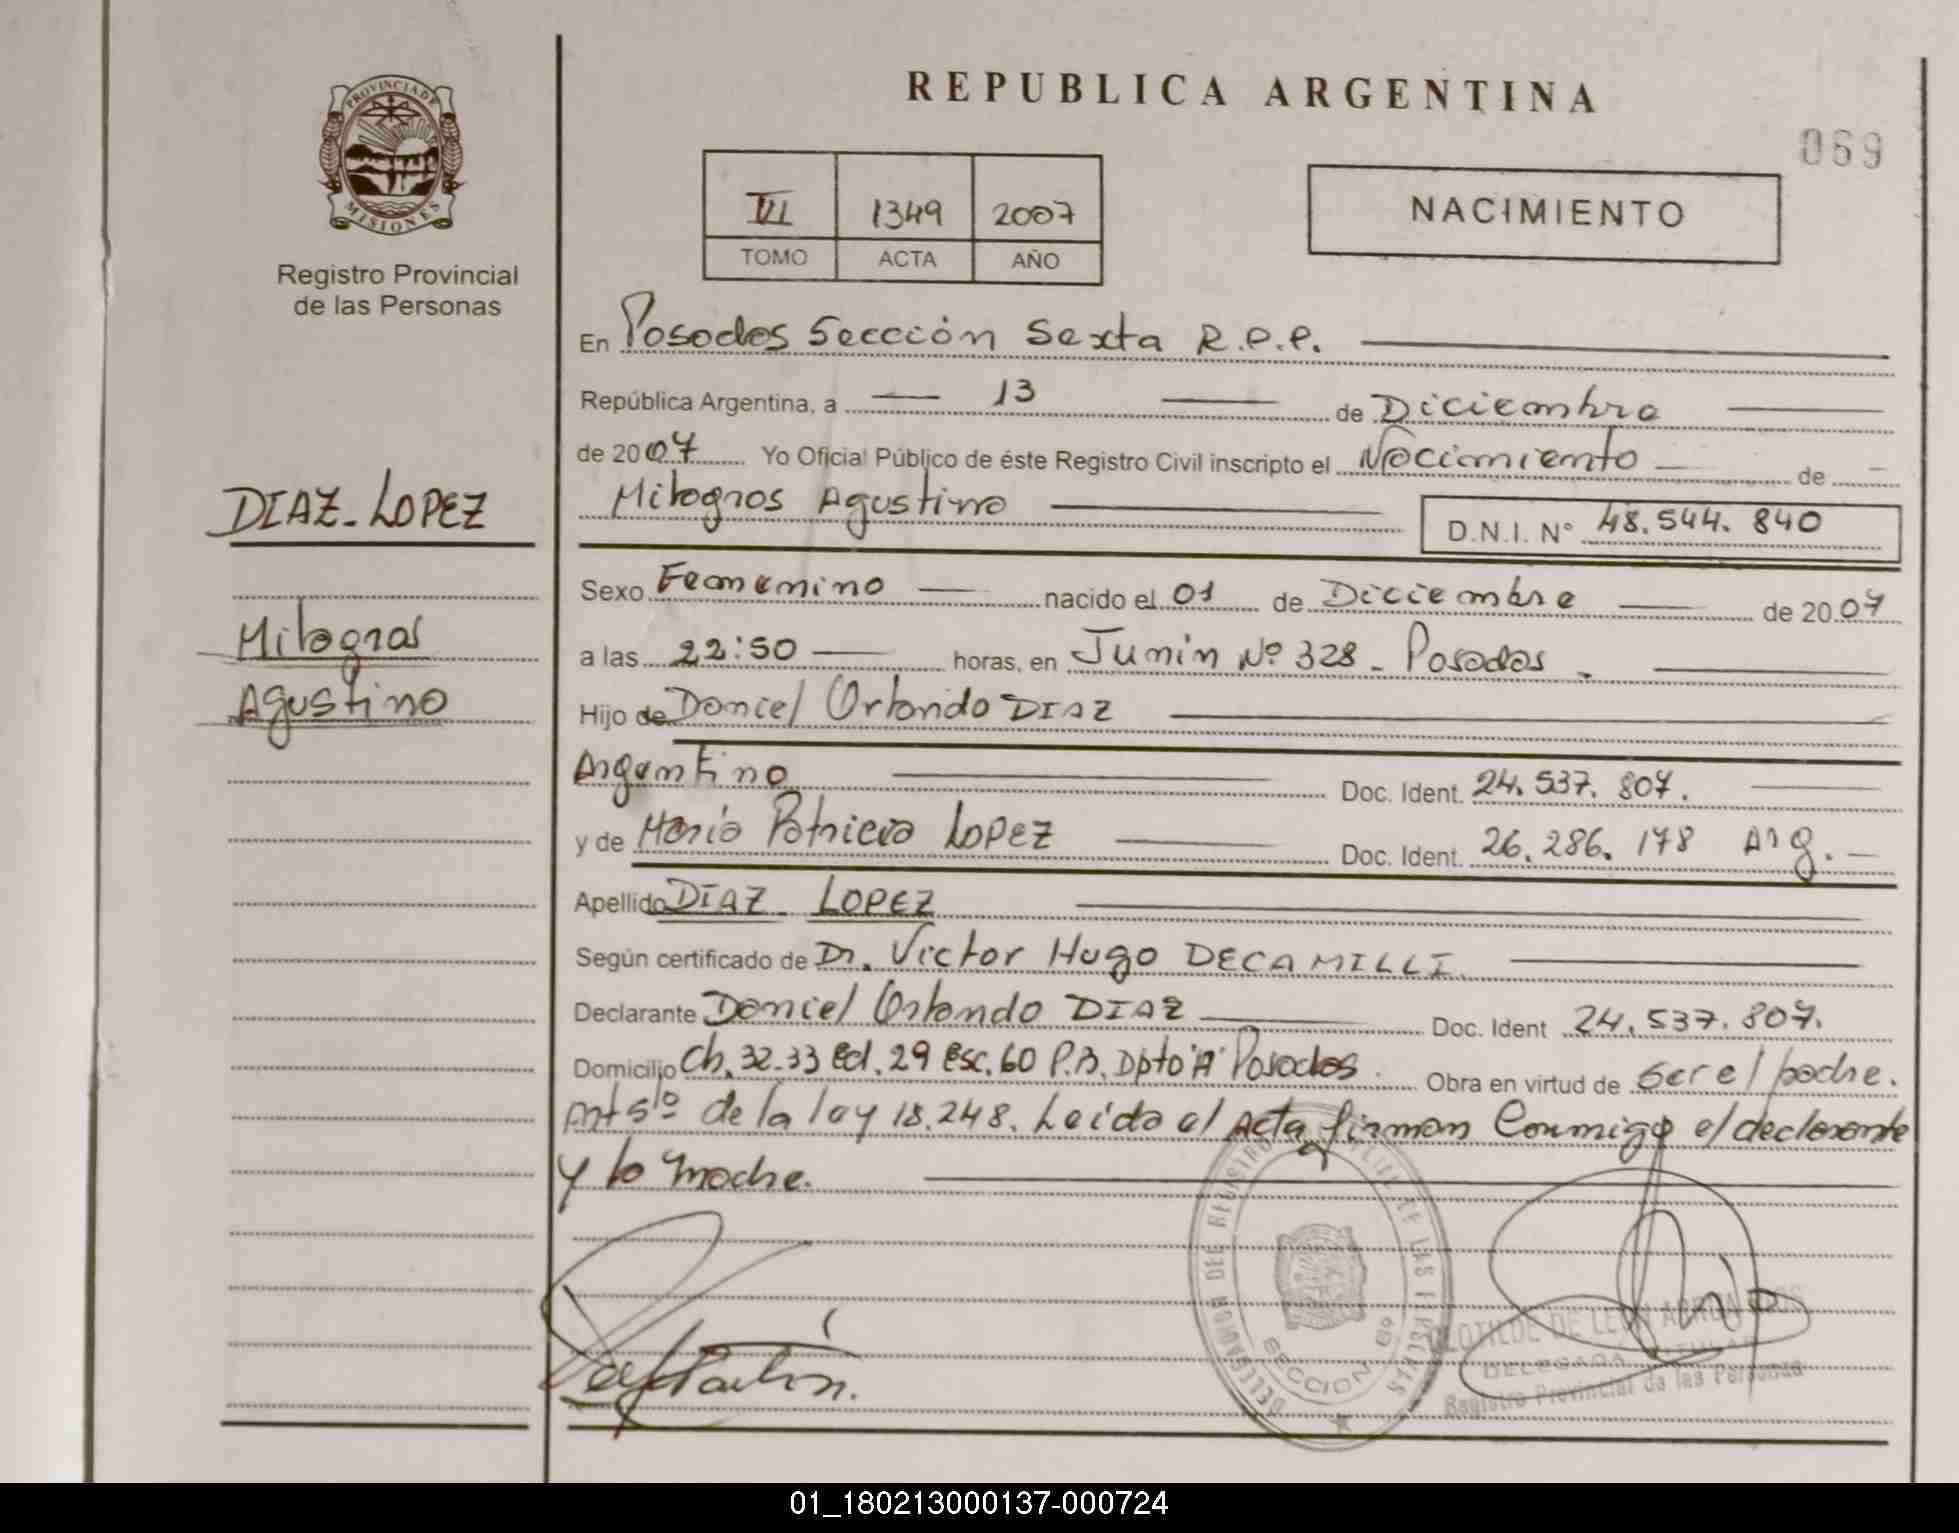 PROVINCIA DE
MISIONES
Registro Provincial
de las Personas
DIAZ-LOPEZ
Milagros
Agustina
REPUBLICA ARGENTINA
069
VI 1349 2007
TOMO ACTA AÑO
NACIMIENTO
En Posadas Sección Sexta R.P.P.
República Argentina, a 13 de Diciembre
de 2007 Yo Oficial Público de éste Registro Civil inscripto el Nacimiento de
Milagros Agustina D.N.I. N° 48.544.840
Sexo Femenino nacido el 01 de Diciembre de 2007
a las 22:50 horas, en Junin Nº 328 - Posadas
Hijo de Daniel Orlando DIAZ
Argentino Doc. Ident. 24.537.807.
y de Maria Patricia LOPEZ Doc. Ident. 26.286.178 Arg.
Apellido DIAZ LOPEZ
Según certificado de Dr. Victor Hugo DECAMILLI
Declarante Daniel Orlando DIAZ Doc. Ident 24.537.807.
Domicilio Ch. 32-33 Ed. 29 Esc. 60 P.B. Dpto "A" Posadas. Obra en virtud de Ser el padre.
Art 5to de la ley 18.248. Leida el Acta firman Conmigo el declarante
y la madre.
DELEGADO DEL REGISTRO PROVINCIAL DE LAS PERSONAS
SECCION 6ª
CLOTILDE DE LEON
DELEGADA TITULAR
Registro Provincial de las Personas
01_180213000137-000724